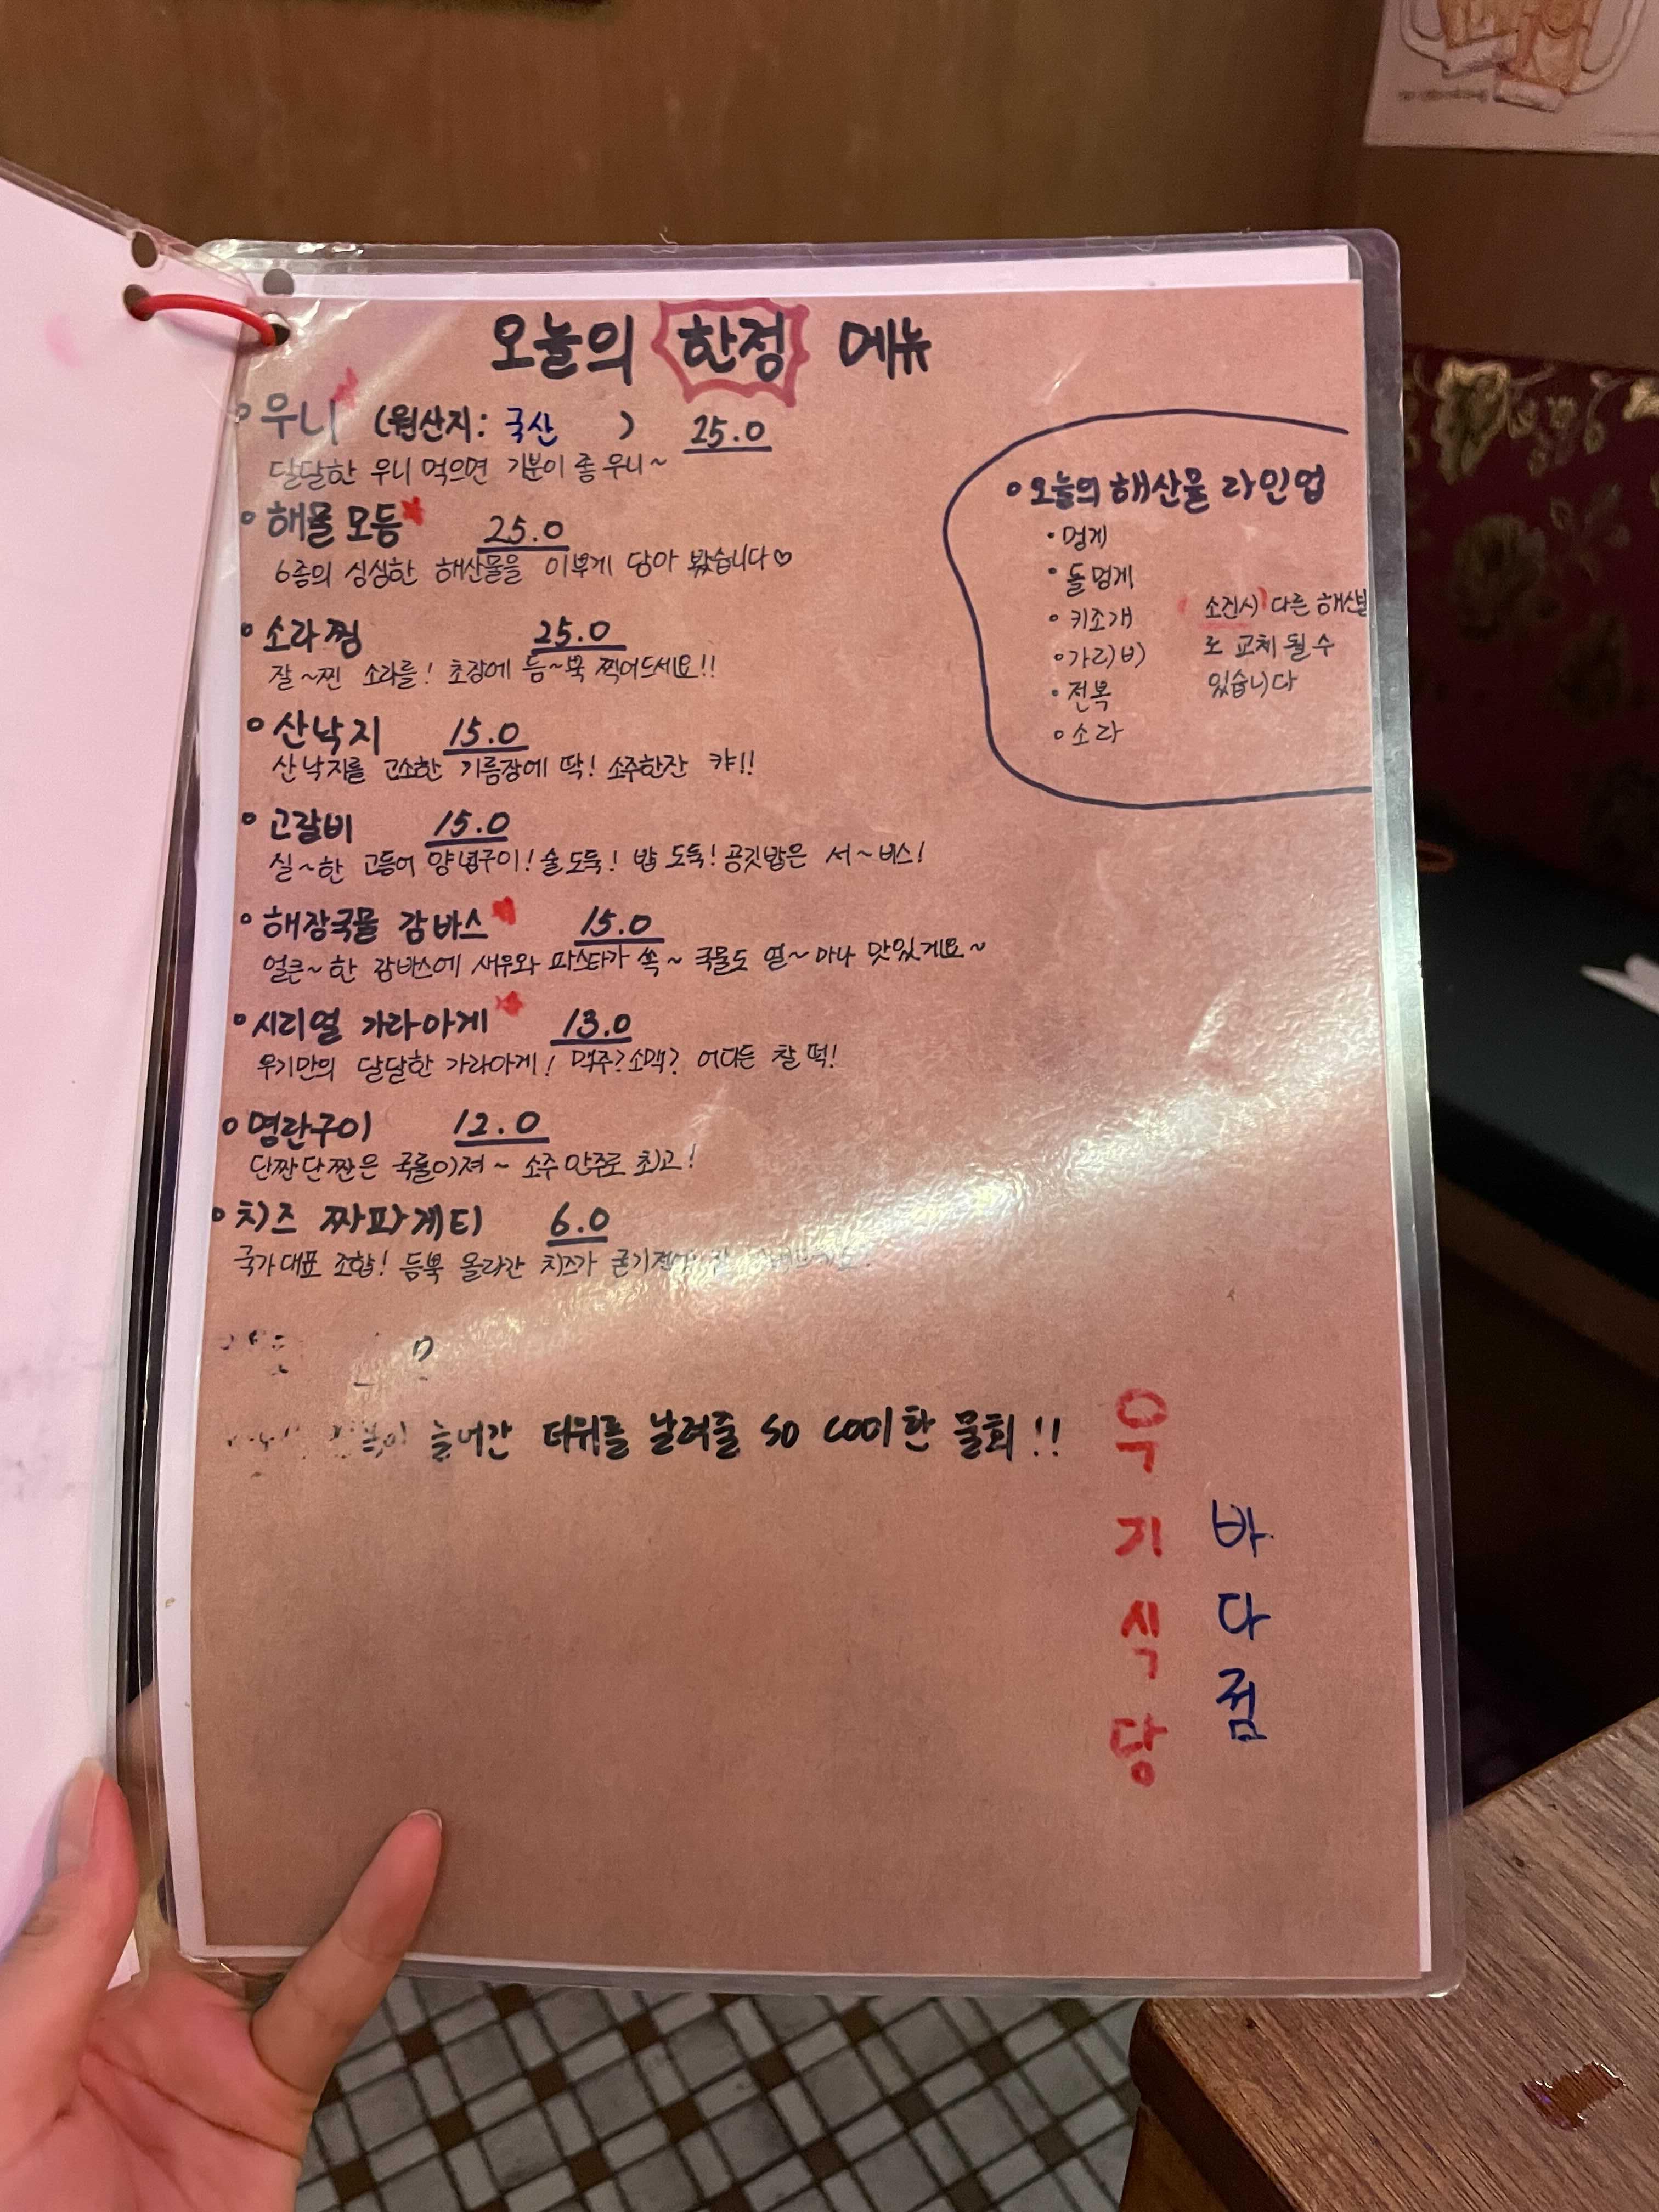 오늘의 한정 메뉴
우니 (원산지: 국산 ) 25.0
달달한 우니 먹으면 기분이 좋우니~
해물모듬 25.0
6종의 싱싱한 해산물을 이쁘게 담아 봤습니다♡
소라찜 25.0
잘~찐 소라를! 초장에 듬~뿍 찍어드세요!!
산낙지 15.0
산낙지를 고소한 기름장에 딱! 소주한잔 캬!!
고갈비 15.0
실~한 고등어 양념구이! 술도둑! 밥도둑! 공깃밥은 서~비스!
해장국물 감바스 15.0
얼큰~한 감바스에 새우와 파스타가 쏙~ 국물도 얼~마나 맛있게요~
시리얼 가라아게 13.0
우기만의 달달한 가라아게! 맥주?소맥? 어디든 찰떡!
명란구이 12.0
단짠단짠은 국룰이져~ 소주안주로 최고!
치즈 짜파게티 6.0
국가대표 조합! 듬뿍 올라간 치즈가
늘어간 더위를 날려줄 so cool한 물회!!
오늘의 해산물 라인업
멍게
돌멍게
키조개
가리비
전복
소라
소진시 다른 해산물
로 교체 될 수
있습니다
우기식당
바다점